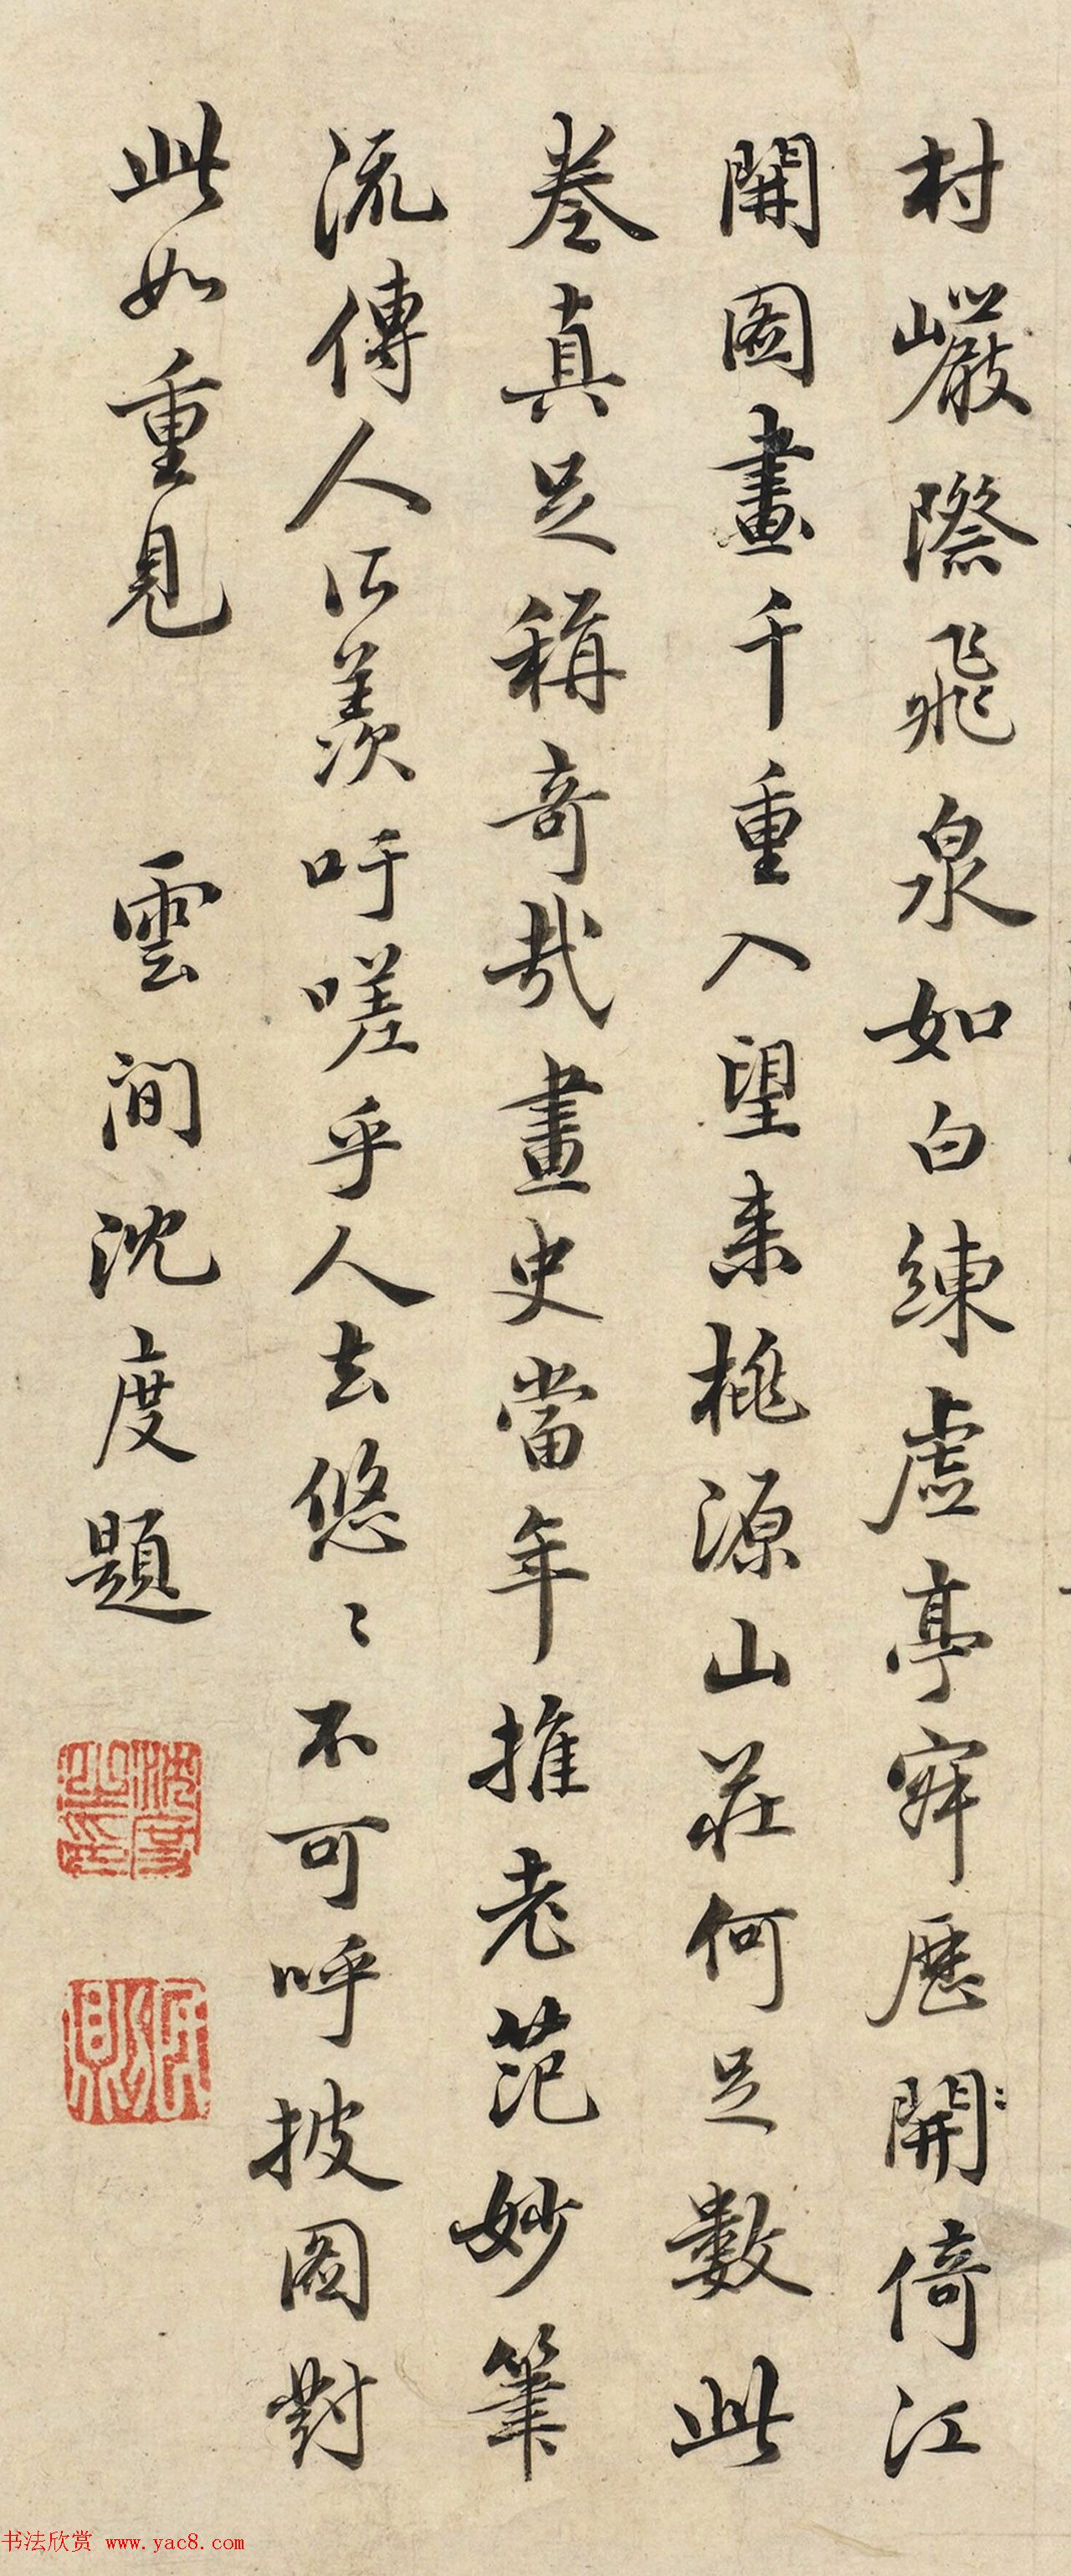 村巖際飛泉如白練虛亭寂歷開倚江
開圖畫千重入望来桃源山莊何足數此
卷真足稱奇哉畫史當年推老范妙筆
流傳人所羨吁嗟乎人去悠〻不可呼披圖對
此如重見 雲間沈度題
沈度之印
書法欣赏 www.yac8.com